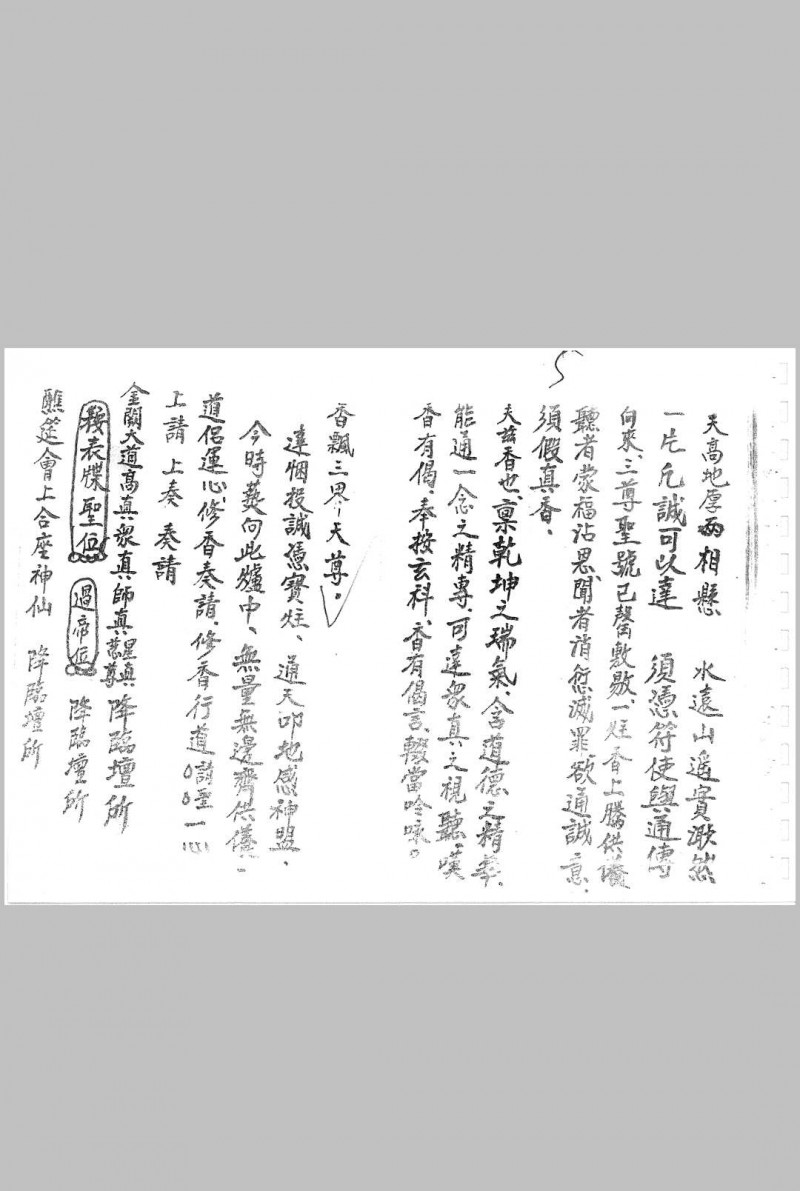 5
天高地厚兩相懸　水遠山遥實渺然
一片凡誠可以達　須憑符使與通傳
向來、三尊聖號已罄敷敭、一炷香上騰供養
聽者蒙福沾恩、聞者消愆滅罪、欲通誠意、
須假真香、
夫茲香也、禀乾坤之瑞氣、含道德之精華、
能通一念之精專、可達衆真之視聽、嘆
香有偈、奉按玄科、香有偈言、輙當吟咏。
香飄三界丶天尊。
達悃投誠憑寳炷、通天叩地感神盟、
今時爇向此爐中、無量無邊齊供養。
道侣運心、修香奏請、修香行道 請聖 一心
上請 上奏 奏請
金闕大道高真衆真師真 星真 慈尊 降臨壇所
按表牒聖位 過帝位 降臨壇所
醮筵會上合座神仙 降臨壇所